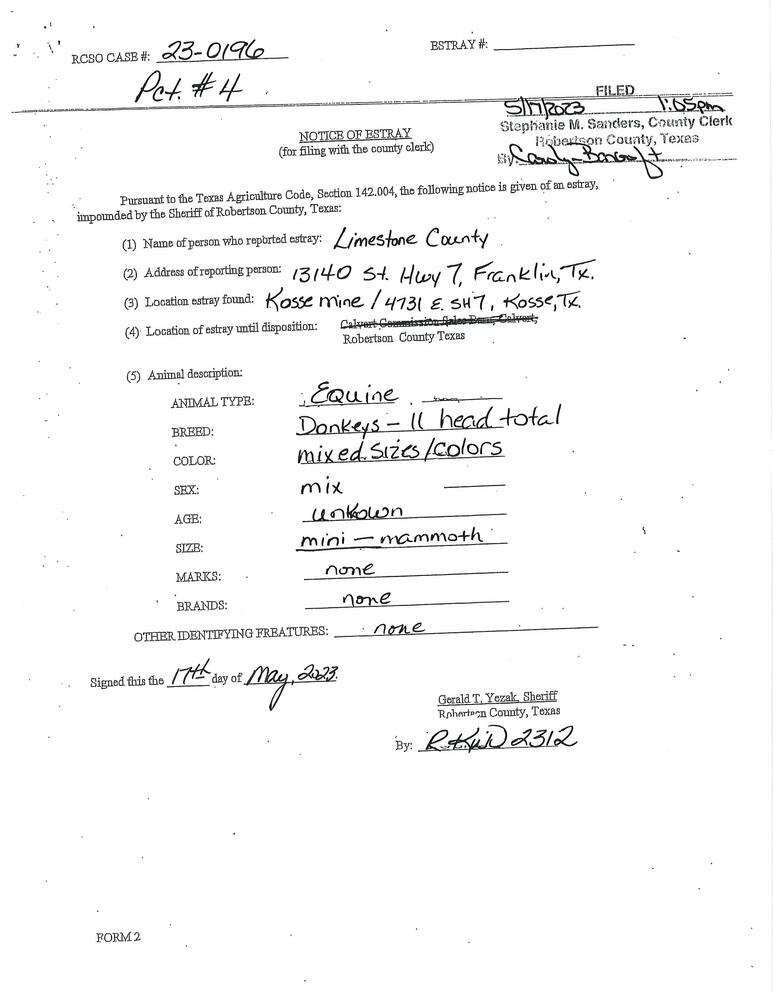 RCSO CASE #: 23-0196
ESTRAY #:
Pct. # 4
FILED
5/17/2023 1:05pm
Stephanie M. Sanders, County Clerk
Robertson County, Texas
By
NOTICE OF ESTRAY
(for filing with the county clerk)
Pursuant to the Texas Agriculture Code, Section 142.004, the following notice is given of an estray,
impounded by the Sheriff of Robertson County, Texas:
(1) Name of person who reported estray: Limestone County
(2) Address of reporting person: 13140 St. Hwy 7, Franklin, Tx.
(3) Location estray found: Kosse mine / 4731 E. SH7, Kosse, Tx.
(4) Location of estray until disposition: Calvert Commission Sales Barn, Calvert,
Robertson County Texas
(5) Animal description:
ANIMAL TYPE: Equine
BREED: Donkeys - 11 head total
COLOR: mixed sizes/colors
SEX: mix
AGE: unkown
SIZE: mini - mammoth
MARKS: none
BRANDS: none
OTHER IDENTIFYING FREATURES: none
Signed this the 17th day of May, 2023.
Gerald T. Yezak, Sheriff
Robertson County, Texas
By: 2312
FORM 2